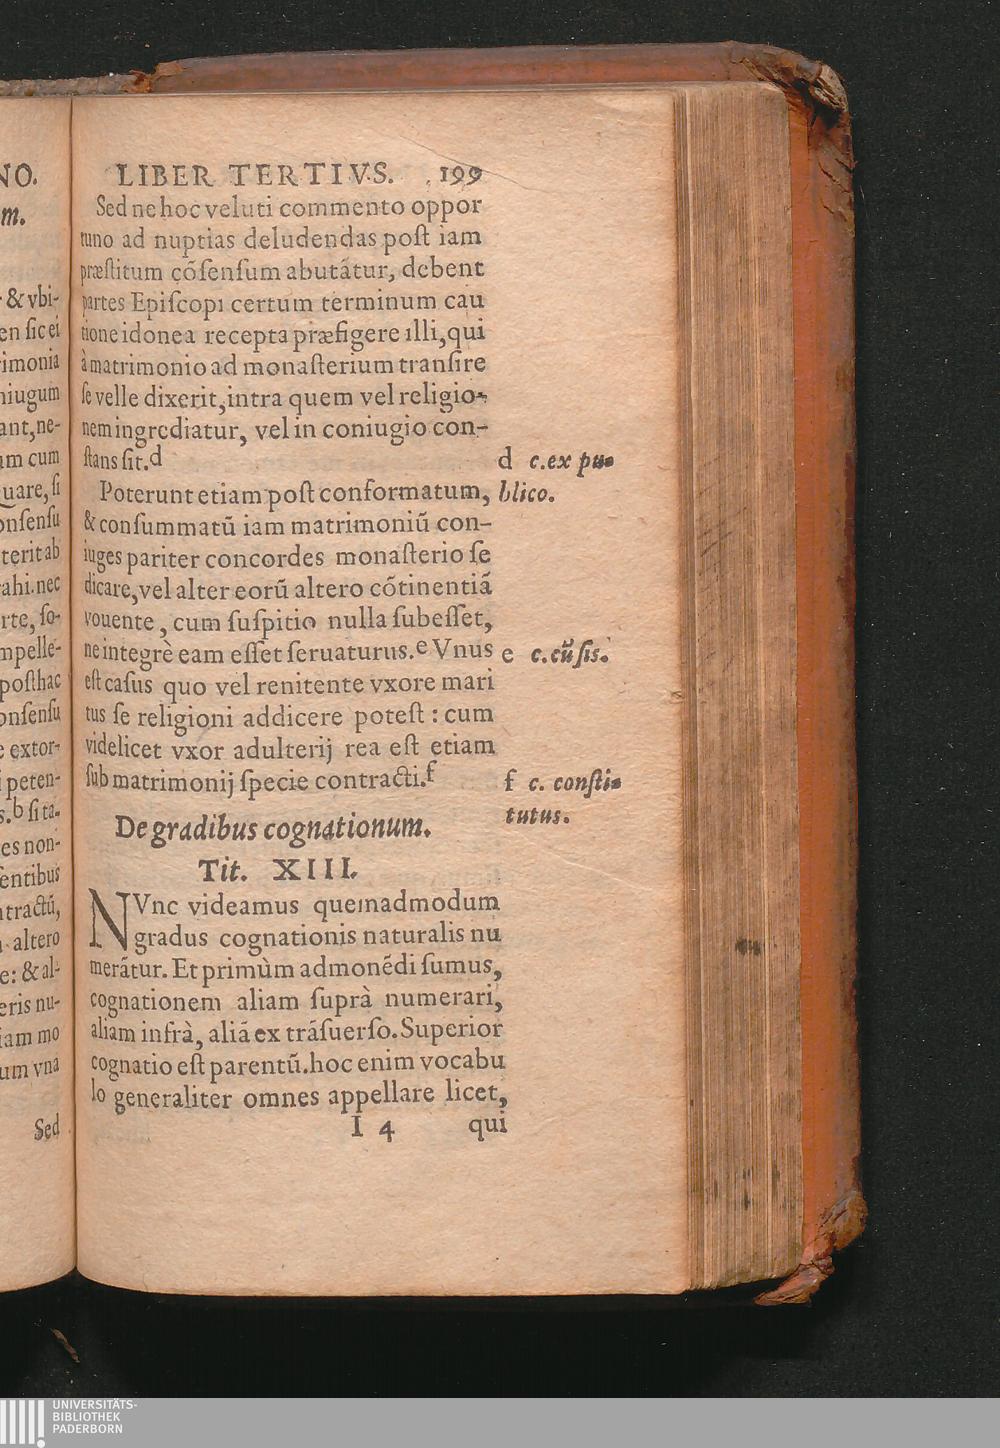 NO.
m.
& vbi-
en ſic ei
imonia
niugum
ant, ne-
um cum
quare, ſi
onſenſu
terit ab
ahi. nec
rte, ſo-
mpelle-
poſthac
onſenſu
e extor-
i peten-
s.b ſi ta-
es non-
ſentibus
tractū,
altero
e: & al-
eris nu-
iam mo
um vna
Sed
LIBER TERTIVS. 199
Sed ne hoc veluti commento oppor
tuno ad nuptias deludendas poſt iam
præſtitum cõſenſum abutãtur, debent
partes Epiſcopi certum terminum cau
tione idonea recepta præfigere illi, qui
à matrimonio ad monaſterium tranſire
ſe velle dixerit, intra quem vel religio-
nem ingrediatur, vel in coniugio con-
ſtans ſit.d
d c. ex pu-
blico.
Poterunt etiam poſt conformatum,
& conſummatū iam matrimoniū con-
iuges pariter concordes monaſterio ſe
dicare, vel alter eorū altero cõtinentiã
vouente, cum ſuſpitio nulla ſubeſſet,
ne integrè eam eſſet ſeruaturus.e Vnus
e c. cū ſis.
eſt caſus quo vel renitente vxore mari
tus ſe religioni addicere poteſt : cum
videlicet vxor adulterij rea eſt etiam
ſub matrimonij ſpecie contracti.f
f c. conſti-
tutus.
De gradibus cognationum.
Tit. XIII.
NVnc videamus quemadmodum
gradus cognationis naturalis nu
merãtur. Et primùm admonẽdi ſumus,
cognationem aliam ſuprà numerari,
aliam infrà, aliã ex trãſuerſo. Superior
cognatio eſt parentū. hoc enim vocabu
lo generaliter omnes appellare licet,
I 4 qui
UNIVERSITÄTS-
BIBLIOTHEK
PADERBORN